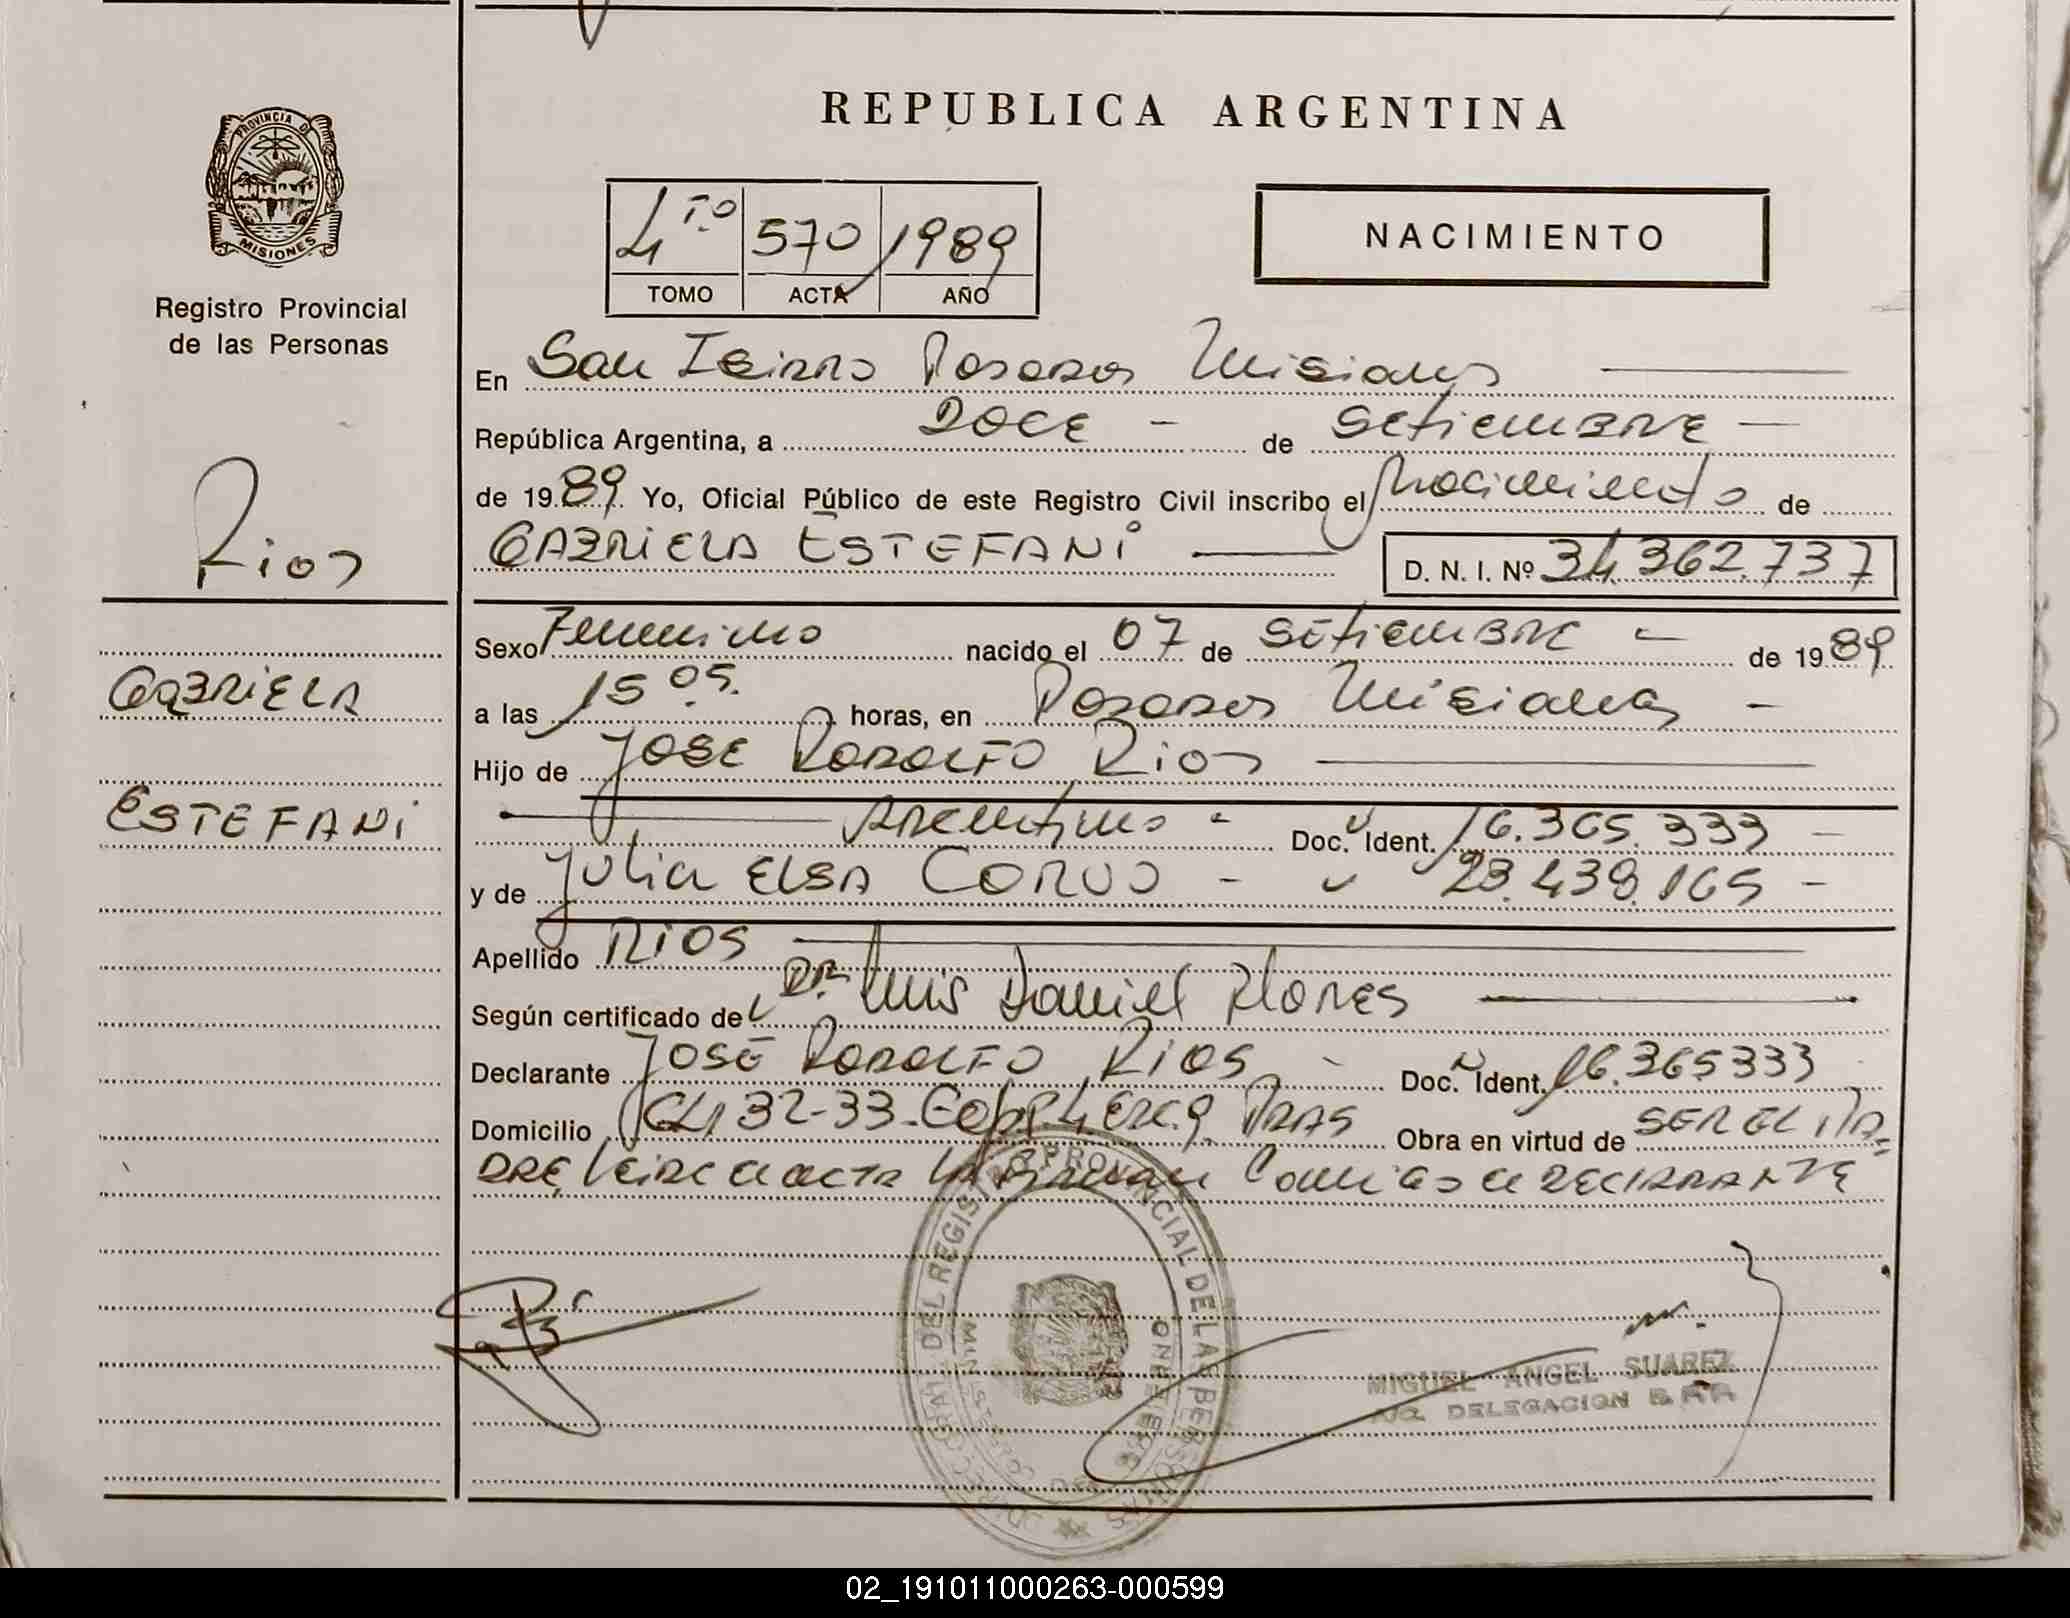 REPUBLICA ARGENTINA
PROVINCIA DE
MISIONES
Registro Provincial
de las Personas
4to 570 1989
TOMO ACTA AÑO
NACIMIENTO
En San Isidro Posadas Misiones
República Argentina, a DOCE - de Setiembre -
de 1989 Yo, Oficial Público de este Registro Civil inscribo el Nacimiento de
GABRIELA ESTEFANI D. N. I. Nº 34.362.737
Rios
GABRIELA
ESTEFANI
Sexo Femenino nacido el 07 de SEtiembre - de 1989
a las 15 05. horas, en Posadas Misiones -
Hijo de José RODOLFO Rios
Argentino - Doc. Ident. 16.365.333 -
y de Julia ELSA CORVO - 23.438.165 -
Apellido RIOS
Según certificado de Dr. Luis Daniel Flores
Declarante JOSÉ RODOLFO RIOS - Doc. Ident. 16.365333
Domicilio 32-33 Obra en virtud de SER EL PA-
DRE, el acta la firman Conmigo el DECLARANTE
DIRECCION GRAL. DEL REGISTRO PROVINCIAL DE LAS PERSONAS
MIGUEL ANGEL SUAREZ
DELEGACION
02_191011000263-000599